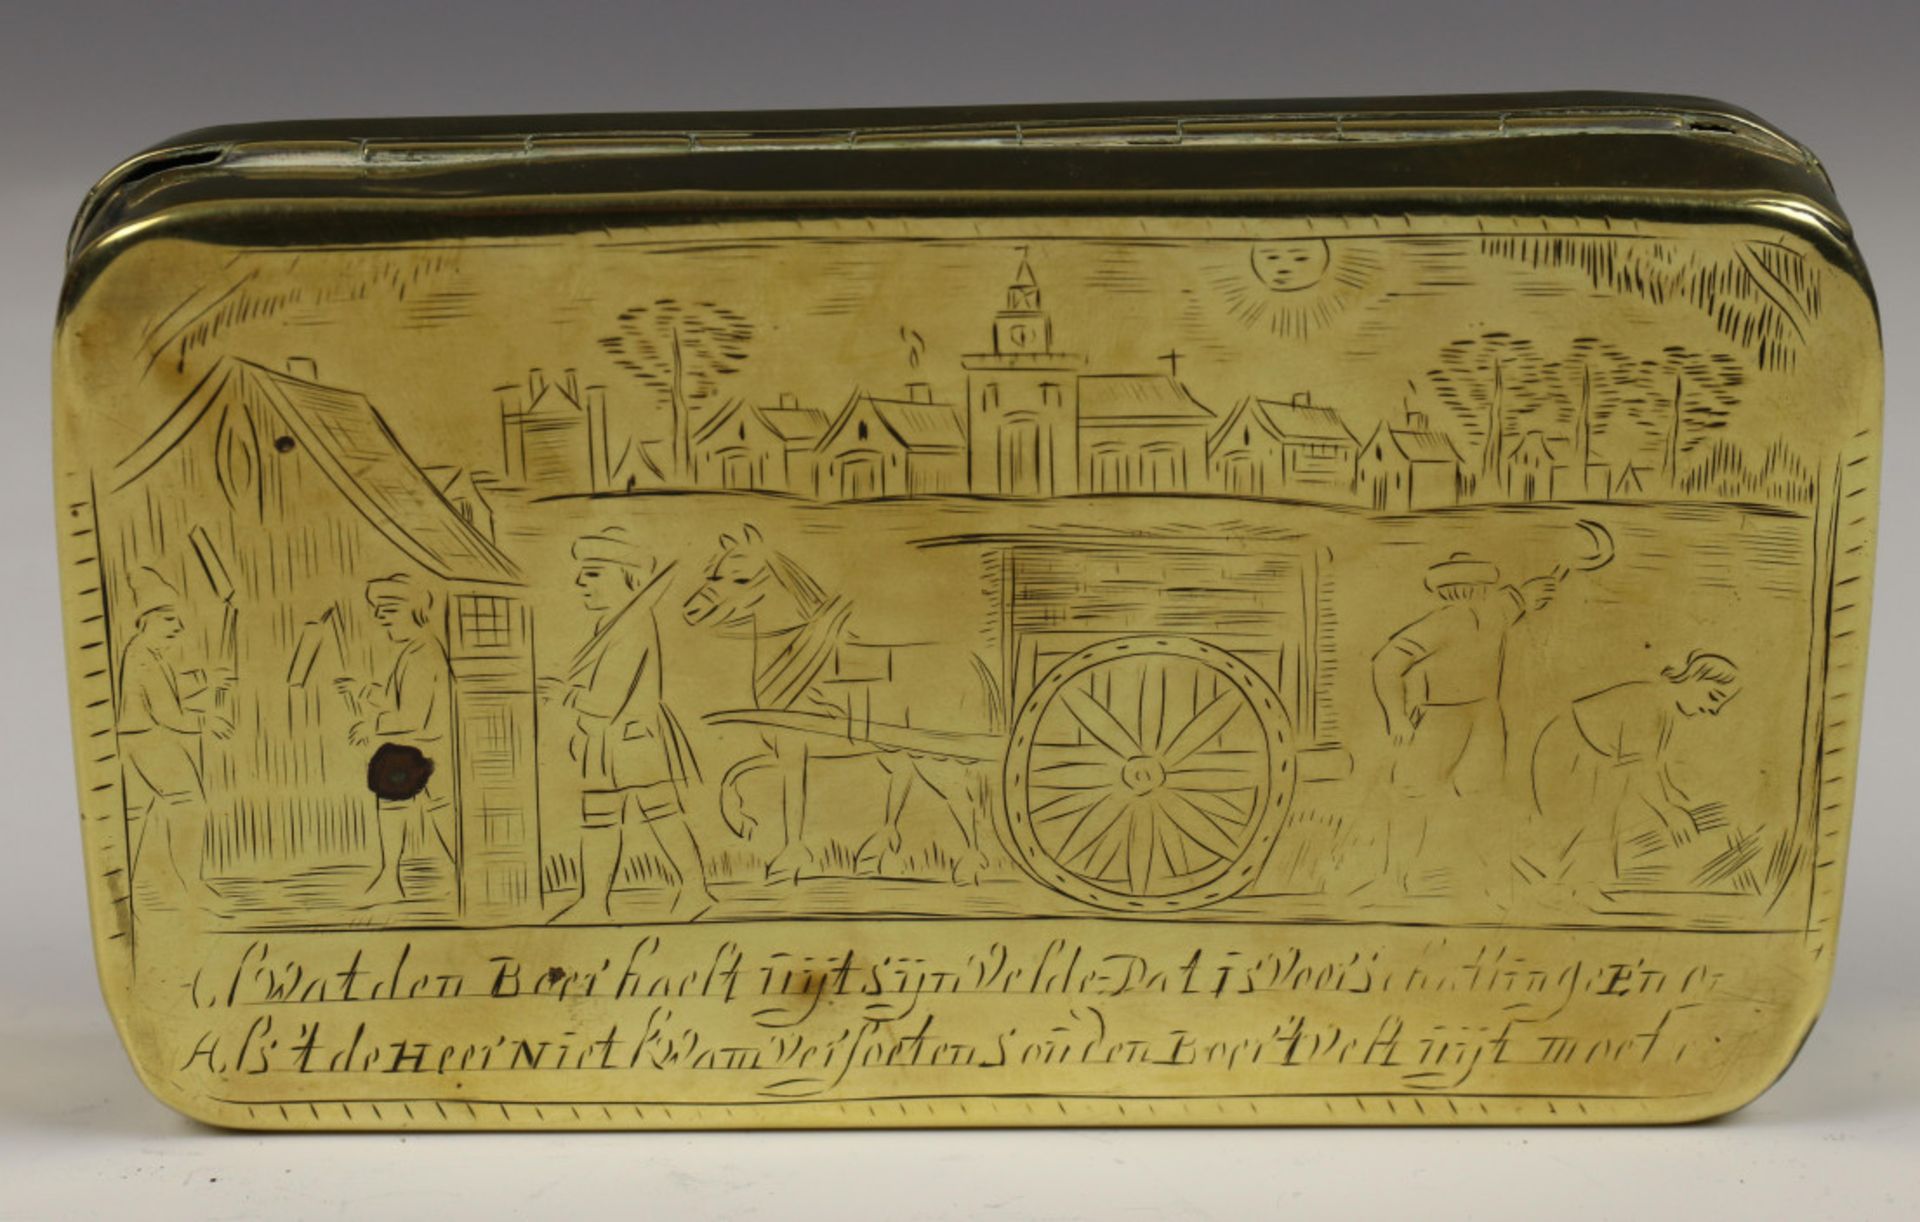 Als Wat den Boer haelt uijt sijn Velde Dat is Voer schattinge En
Als 't de Heer Niet kWam Versoeten Soüden Boer 't Velt uijt moet